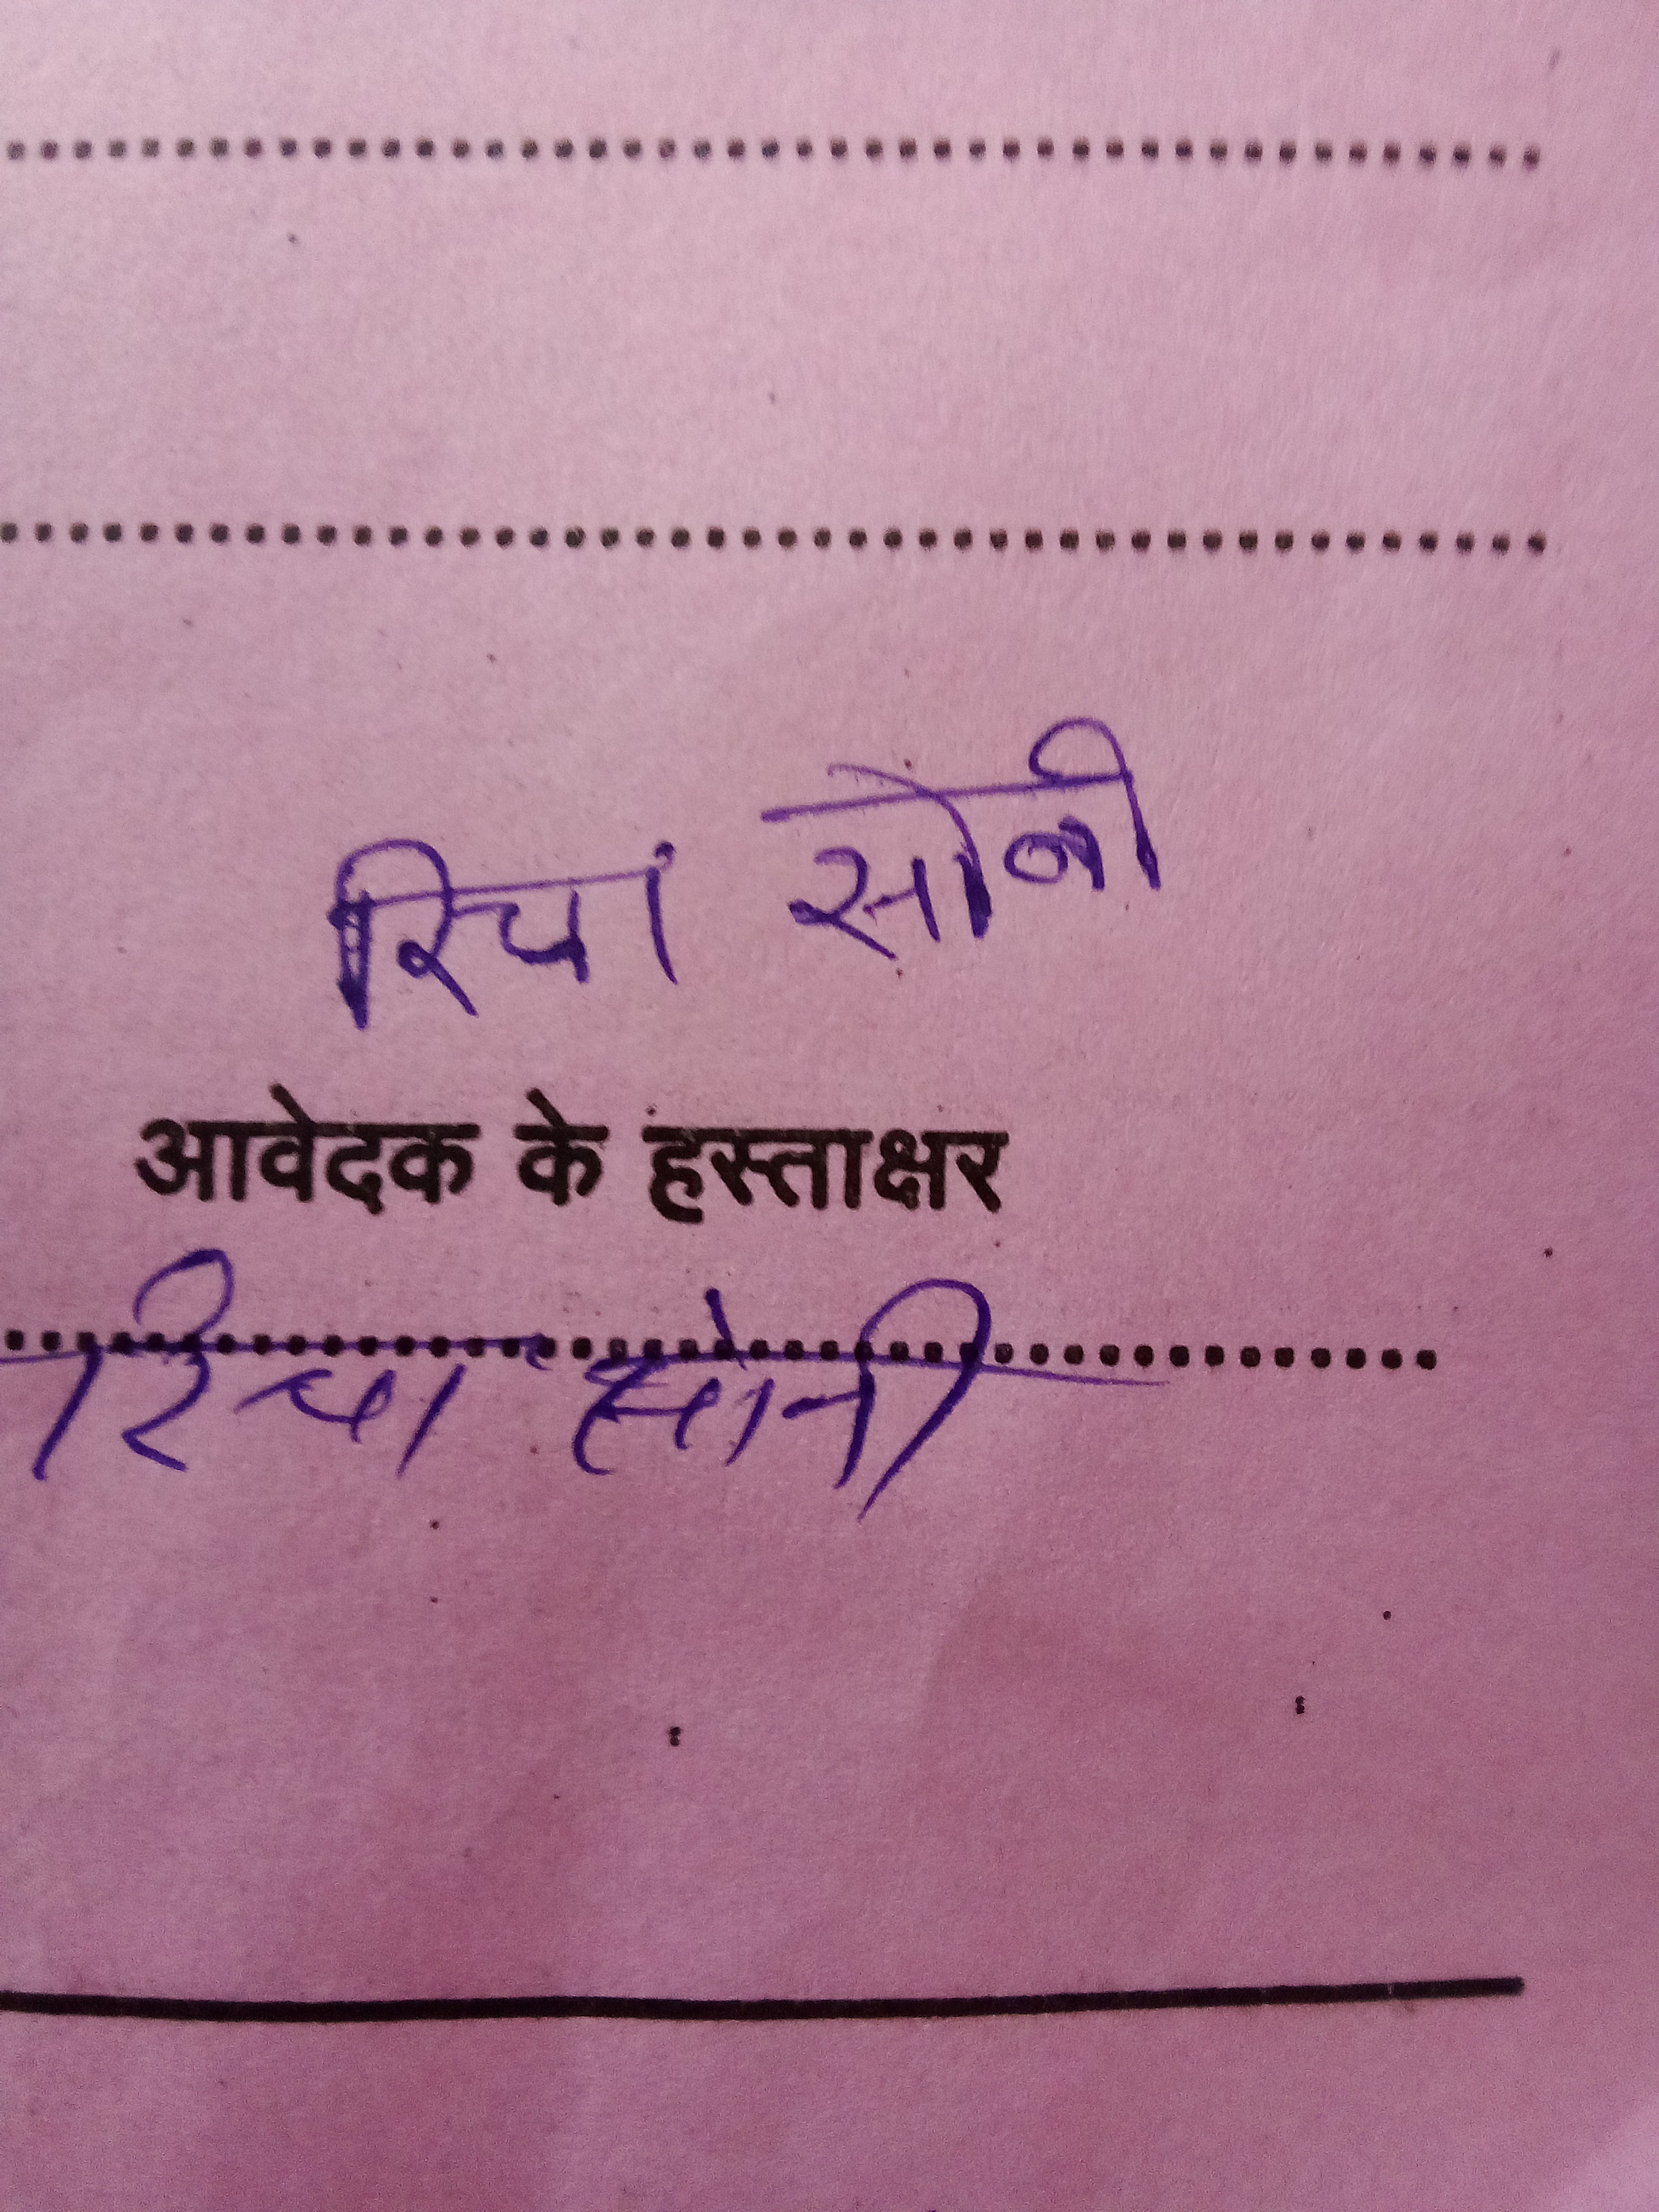 रिचा सोनी
आवेदक के हस्ताक्षर
रिचा सोनी